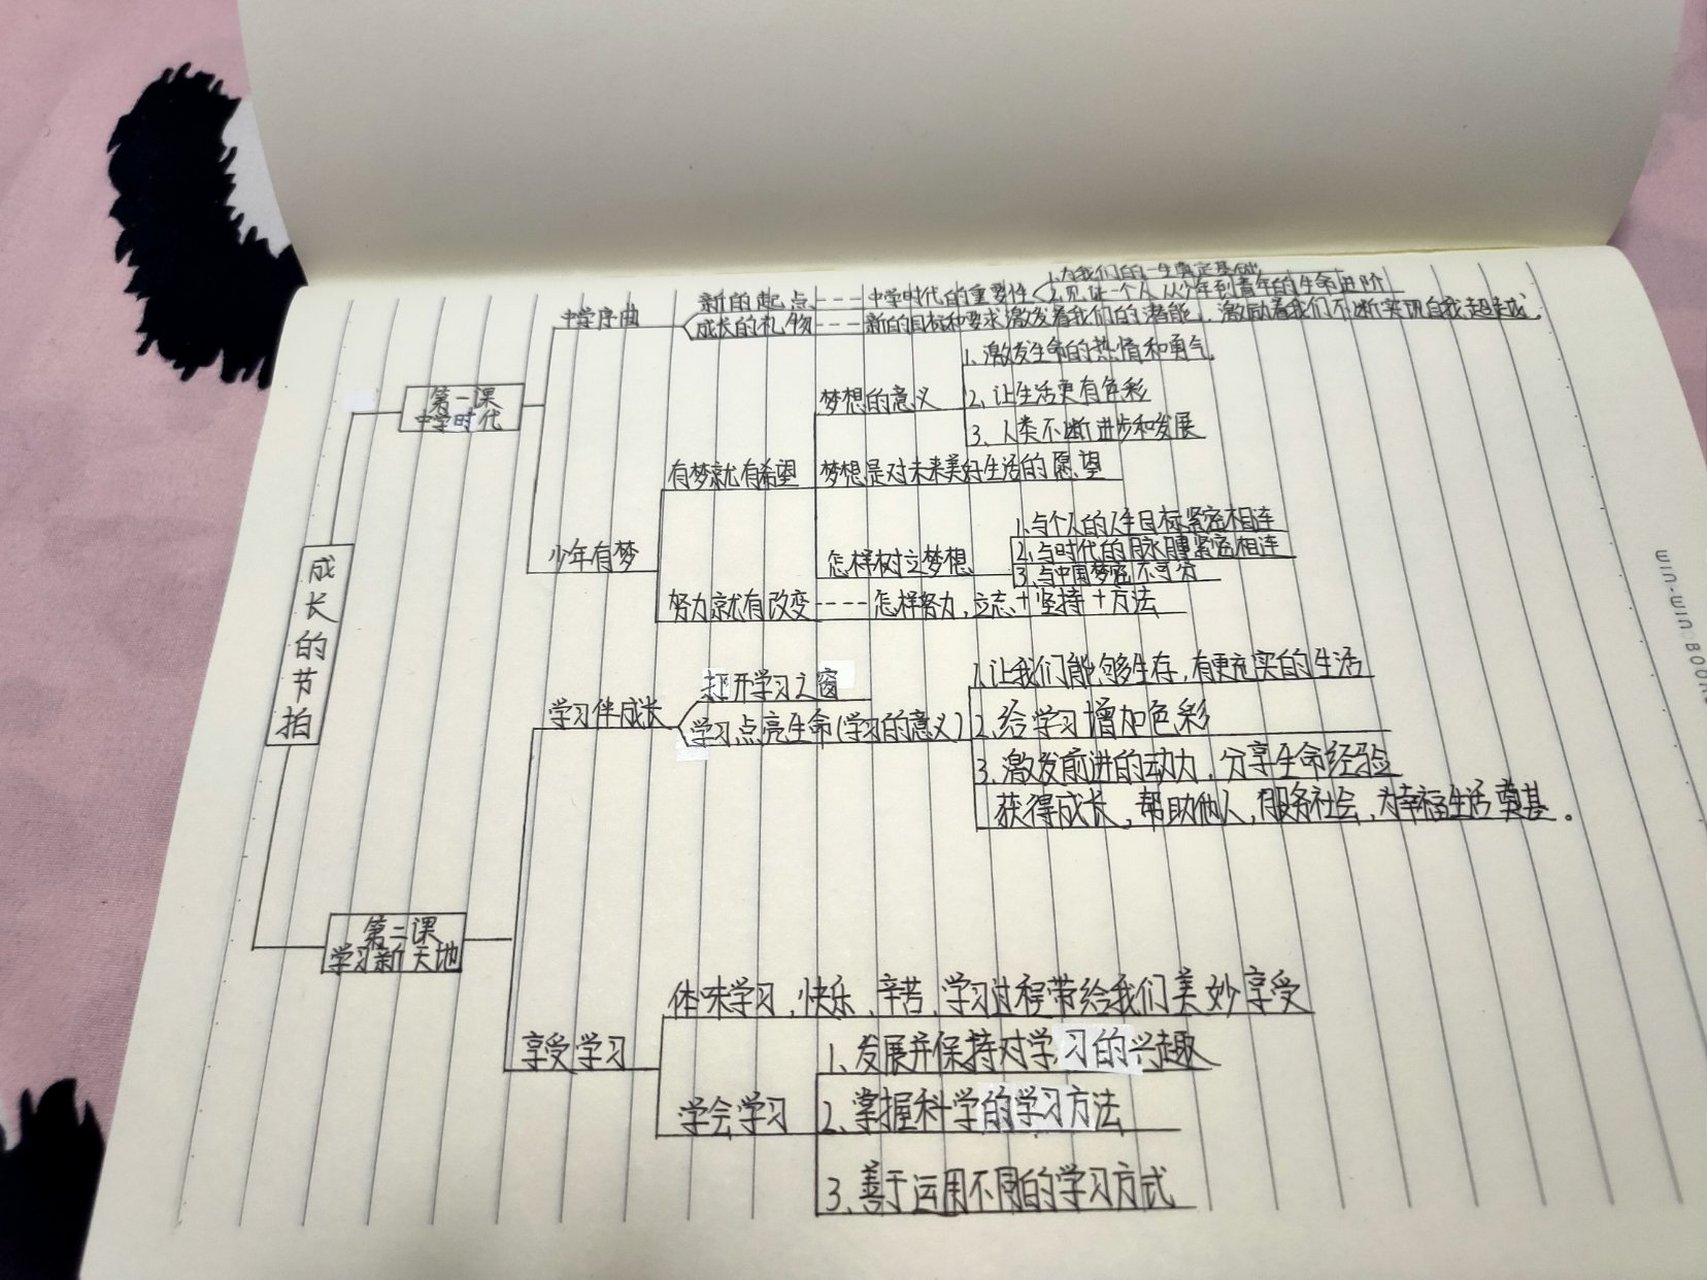 成长的节拍
第一课
中学时代
中学序曲
新的起点---中学时代的重要性
1.为我们的一生奠定基础
2.见证一个人从少年到青年的生命进阶
成长的礼物---新的目标和要求激发着我们的潜能，激励着我们不断实现自我超越。
少年有梦
有梦就有希望
梦想的意义
1、激发生命的热情和勇气。
2、让生活更有色彩
3、人类不断进步和发展
梦想是对未来美好生活的愿望
怎样树立梦想
1、与个人的人生目标紧密相连
2、与时代的脉膊紧密相连
3、与中国梦密不可分
努力就有改变----怎样努力，立志+坚持+方法
第二课
学习新天地
学习伴成长
打开学习之窗
学习点亮生命(学习的意义)
1.让我们能够生存，有更充实的生活
2.给学习增加色彩
3、激发前进的动力，分享生命经验
获得成长，帮助他人，服务社会，为幸福生活奠基。
享受学习
体味学习，快乐、辛苦，学习过程带给我们美妙享受
学会学习
1、发展并保持对学习的兴趣
2、掌握科学的学习方法
3、善于运用不同的学习方式